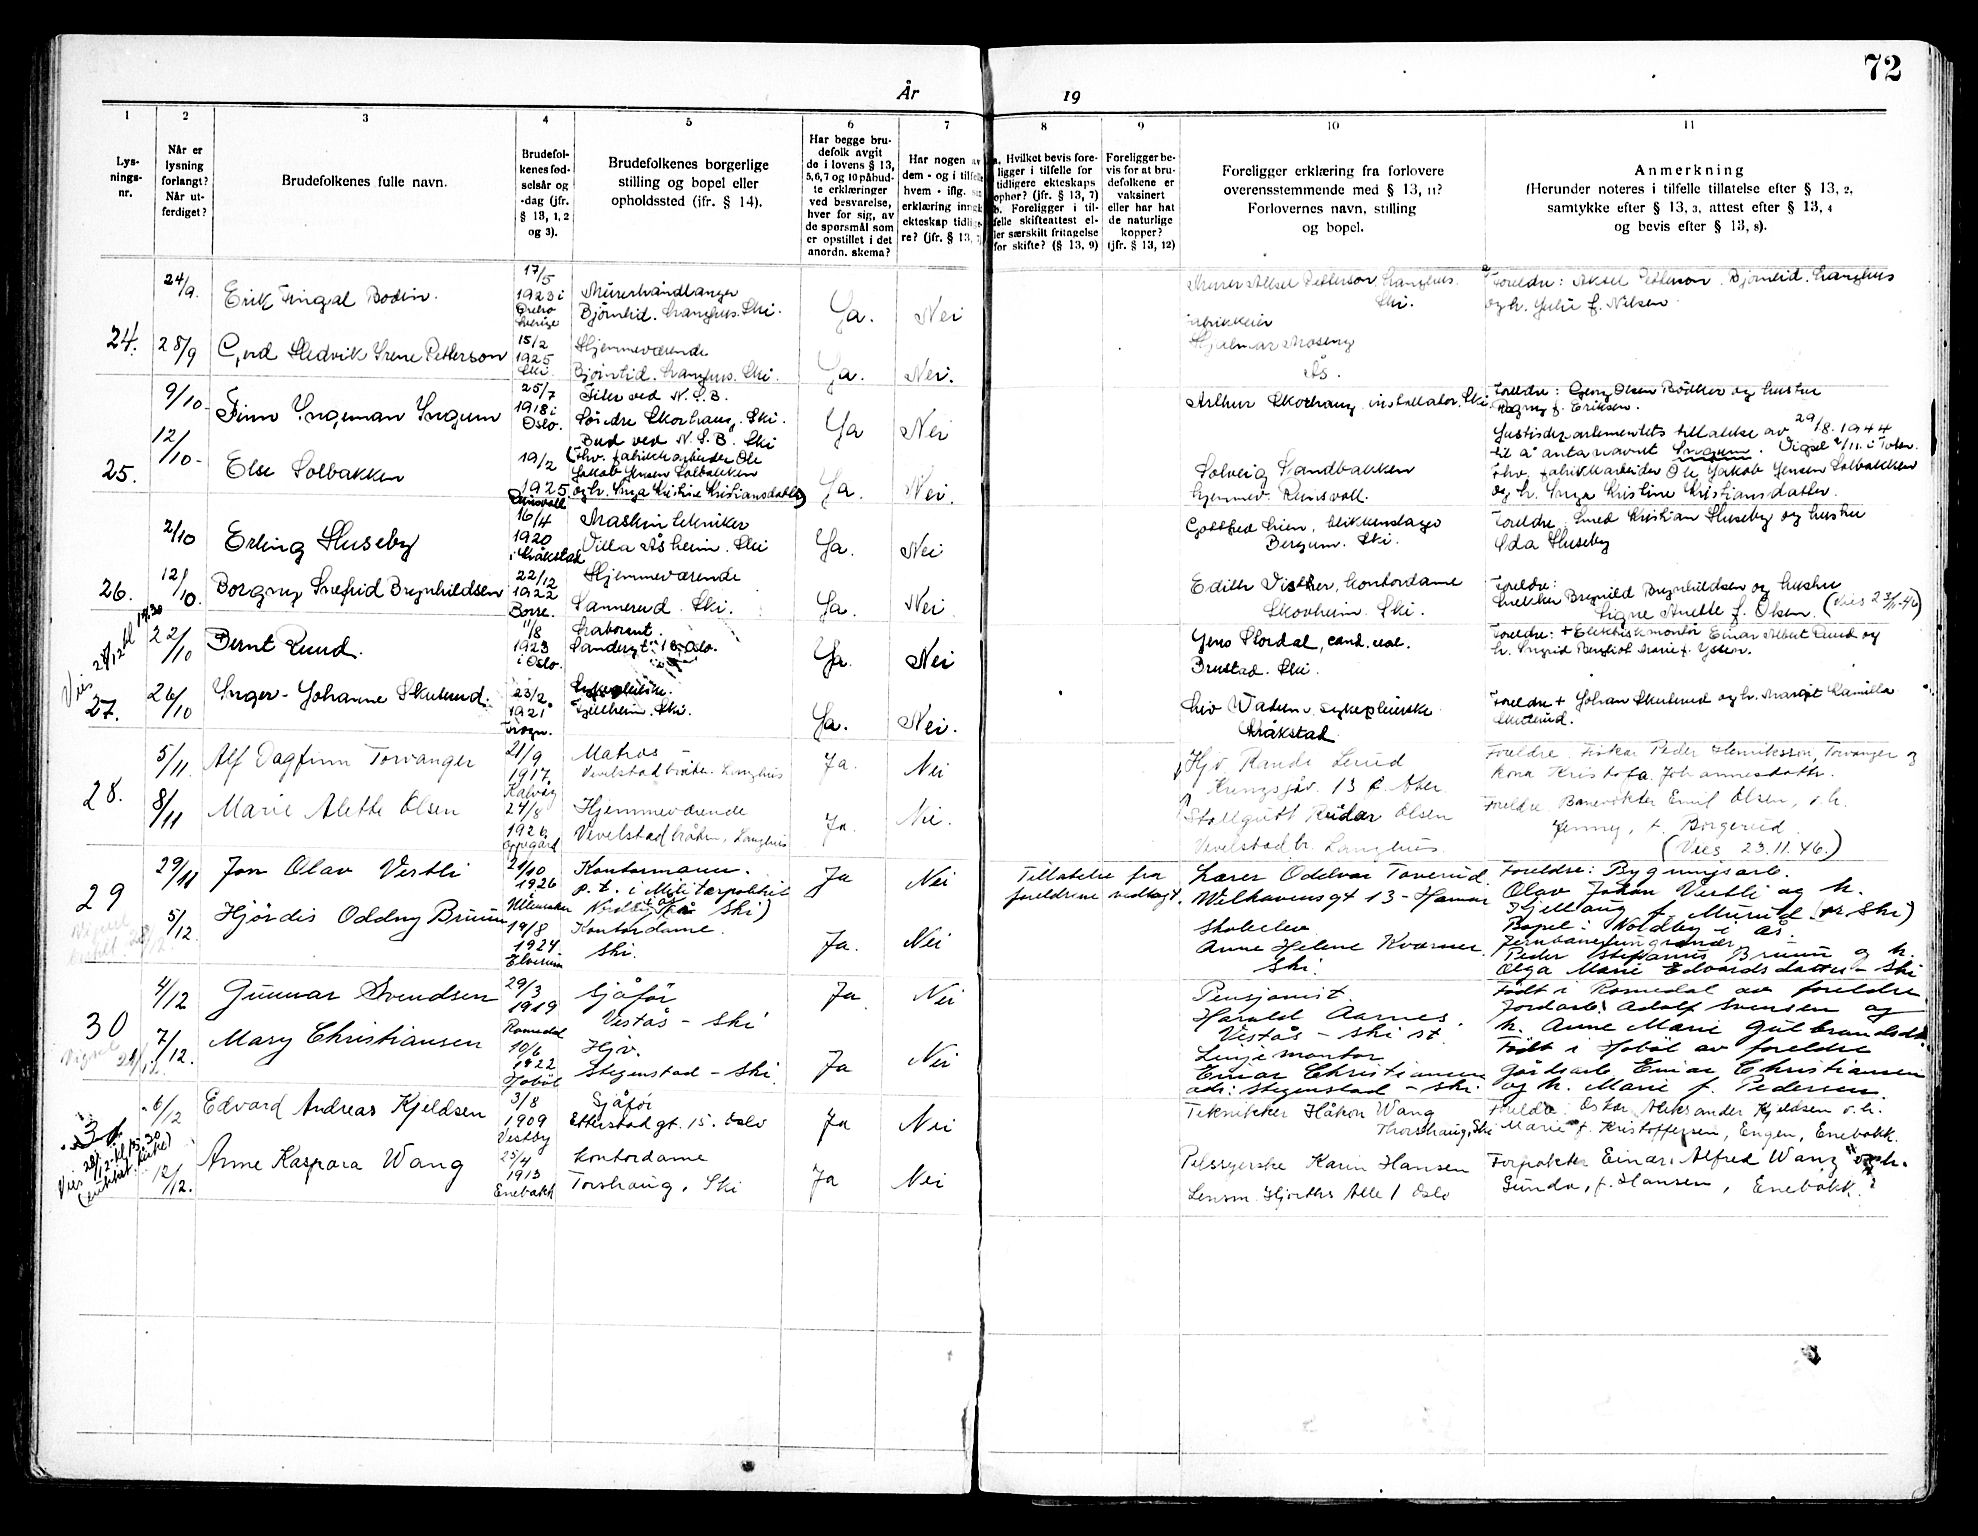 72
År
19
1
2
3
4
5
6
7
8
9
10
11
Lys-
nings-
nr.
Når er
lysning
forlangt?
Når ut-
ferdiget?
Brudefolkenes fulle navn.
Brudefol-
kenes fød-
selsår og
-dag (jfr.
§ 13, 1, 2
og 3).
Brudefolkenes borgerlige
stilling og bopel eller
opholdssted (jfr. § 14).
Har begge bru-
defolk avgit
de i lovens § 13,
5,6,7 og 10 påbud-
te erklæringer
ved besvarelse,
hver for sig, av
de spørsmål som
er opstillet i det
anordn. skema?
Har nogen av
dem - og i tilfelle
hvem - iflg. sin
erklæring inng
ekteskap tidlig
re? (jfr. § 13,
a. Hvilket bevis fore-
ligger i tilfelle for
tidligere ekteskaps
ophør? (jfr. § 13, 7)
b. Foreligger i til-
felle skifteattest el-
ler særskilt fritagelse
for skifte? (§ 13, 9)
Foreligger be-
vis for at bru-
defolkene er
vaksinert
eller har hat
de naturlige
kopper?
(jfr. § 13, 12)
Foreligger erklæring fra forlovere
overensstemmende med § 13, 11?
Forlovernes navn, stilling
og bopel.
Anmerkning
(Herunder noteres i tilfelle tillatelse efter § 13, 2,
samtykke efter § 13, 3, attest efter § 13, 4
og bevis efter § 13, 8).
24.
24/9.
Erik Fingal Bodin.
17/5
1923 i
Örebro
Sverige
Murerhåndlanger
Bjørnlid. Langhus. Ski.
Ja.
Nei
Murer Aksel Petterson, Langhus.
Ski.
Foreldre: Aksel Petterson. Bjørnlid. Langhus
og h. Julie f. Nilsen
28/9
Gerd Hedvik Irene Petterson
15/2
1925
Ski.
Hjemmeværende
Bjørnlid. Langhus. Ski.
Ja.
Nei.
Fabrikkeier
Hjalmar Moseng
Ås.
25.
9/10-
Finn Ingeman Ingum
25/7
1918 i
Oslo.
Filer ved N.S.B.
Søndre Skorhaug, Ski.
Bud ved N.S.B. Ski
Ja
Nei
Arthur Skorhaug installatør, Ski
Foreldre: Georg Olsen Bödker og hustru
Ragny f. Eriksen.
Justisdepartementets tillatelse av 29/8. 1944
til å anta navnet Ingum. Vigsel 4/11. i Toten.
12/10-
Else Solbakken
19/2
1925
Eidsvoll
(Fhv. fabrikkarbeider Ole
Jakob Jensen Solbakken
og h. Inga Kristine Kristiansdatter)
Ja.
Nei.
Solveig Sandbakken
hjemmev. Eidsvoll.
Fhv. fabrikkarbeider Ole Jakob Jensen Solbakken
og h. Inga Kristine Kristiansdatter.
26.
2/10
Erling Huseby
16/4
1920
i Kråkstad
Maskintekniker
Villa Åsheim. Ski
Ja.
Nei
Gottfred Lien, blikkenslager
Bergum. Ski.
Foreldre: Smed Kristian Huseby og hustru
Ida Huseby
12/10.
Borgny Snefrid Brynhildsen
22/12
1922
Borre.
Hjemmeværende
Sannerud. Ski.
Ja.
Nei.
Edith Visther, kontordame
Skovheim. Ski.
Foreldre:
Snekker Brynild Brynhildsen og hustru
Signe Anette f. Olsen. (Vies 23/11-46)
Vies 21/12 kl 14.30
27.
22/10
Bernt Ruud.
11/8
1923
i Oslo.
Laborant.
Ja.
Nei
Jens Stordal, cand. real.
Brustad. Ski.
Foreldre: + Elektriskmontør Einar Albert Ruud og
26/10
Inger-Johanne Skuterud.
23/2.
1921
Frogn.
Sykepleierske.
Fjellheim. Ski.
Ja.
Nei.
Liv Watum, sykepleierske
Kråkstad
Foreldre + Johan Skuterud og h. Margit Kamilla
Skuterud.
28.
5/11.
Alf Dagfinn Torvanger
21/9
1917.
Kalvåg
Matros -
Vevelstadbråten. Langhus
Ja.
Nei
Hjv. Randi Lerud
Kringsjåv. 13 Ø. Aker.
Foreldre. Fisker Peder Henriksson Torvanger og
kona Kristofa Johannesdottr.
8/11
Marie Alette Olsen
24/8
1926
Oppegård
Hjemmeværende
Vevelstadbråten, Langhus
Ja.
Nei.
Stallgutt Reidar Olsen
Vevelstad br. Langhus.
Foreldre. Banevokter Emil Olsen, o. h.
Jenny, f. Borgerud.
(Vies 23.11.46.)
29
29/11
Jon Olav Vestli
21/10
1926
Ullensaker
Kontormann.
p.t. i Militærpolitiet
Ja
Nei
Tillatelse fra
foreldrene vedlagt.
Lærer Oddvar Taverud
Wilhavensgt 13 - Hamar
Foreldre: Bygningsarb.
Olav Johan Vestli og h.
Fjellaug f. Murud (pr. Ski)
Bopel: Noldby i Ås.
5/12.
Hjördis Oddny Bruun
19/8
1924
Elverum
Kontordame.
Ski.
Ja.
Nei
Anne Helene Kværner
Ski.
Jernbanefungsjonær
Peder Stefanus Bruun og h.
Olga Marie Edvardsdatter - Ski
30
4/12
Gunnar Svendsen
29/3
1919
Romedal
Sjåfør
Vestås - Ski
Ja
Nei
Pensjonist.
Harald Aarnes.
Vestås - Ski st.
Født i Romedal av foreldre
Jordarb. Adolf Svensen og
h. Anne Marie Gulbrandsdt.
7/12.
Mary Christiansen
10/6
1922
Hobøl
Hjv.
Stegenstad - Ski
Ja
Nei
Linjemontør
Einar Christiansen
adr: Stegenstad - Ski.
Født i Hobøl av foreldre
Gårdsarb. Einar Christiansen
og h. Marie f. Pedersen.
31
6/12
Edvard Andreas Kjeldsen
3/8
1909
Vestby
Sjåfør
Etterstadgt. 15. Oslo
Ja
Nei
Tekniker Håkon Wang
Thorshaug, Ski
Foreldre: Oskar Aleksander Kjeldsen o. h.
Marie f. Kristoffersen, Engen, Enebakk.
Vies 28/12 kl 15.30
12/12.
Anne Kaspara Wang
25/4
1913
Enebakk
Kontordame
Torshaug, Ski
Ja
Nei
Pelssyerske Karin Hansen
Lensm. Hjorths Alle 1 Oslo
Forpakter Einar Alfred Wang og h.
Gunda, f. Hansen, Enebakk.